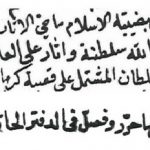 بيضية الاسلام ما في الاثار
الله سلطنة وانار على العا
لطان المشتمل على قصبة كريد
ها حرر وفصل فى الدفتر الخا